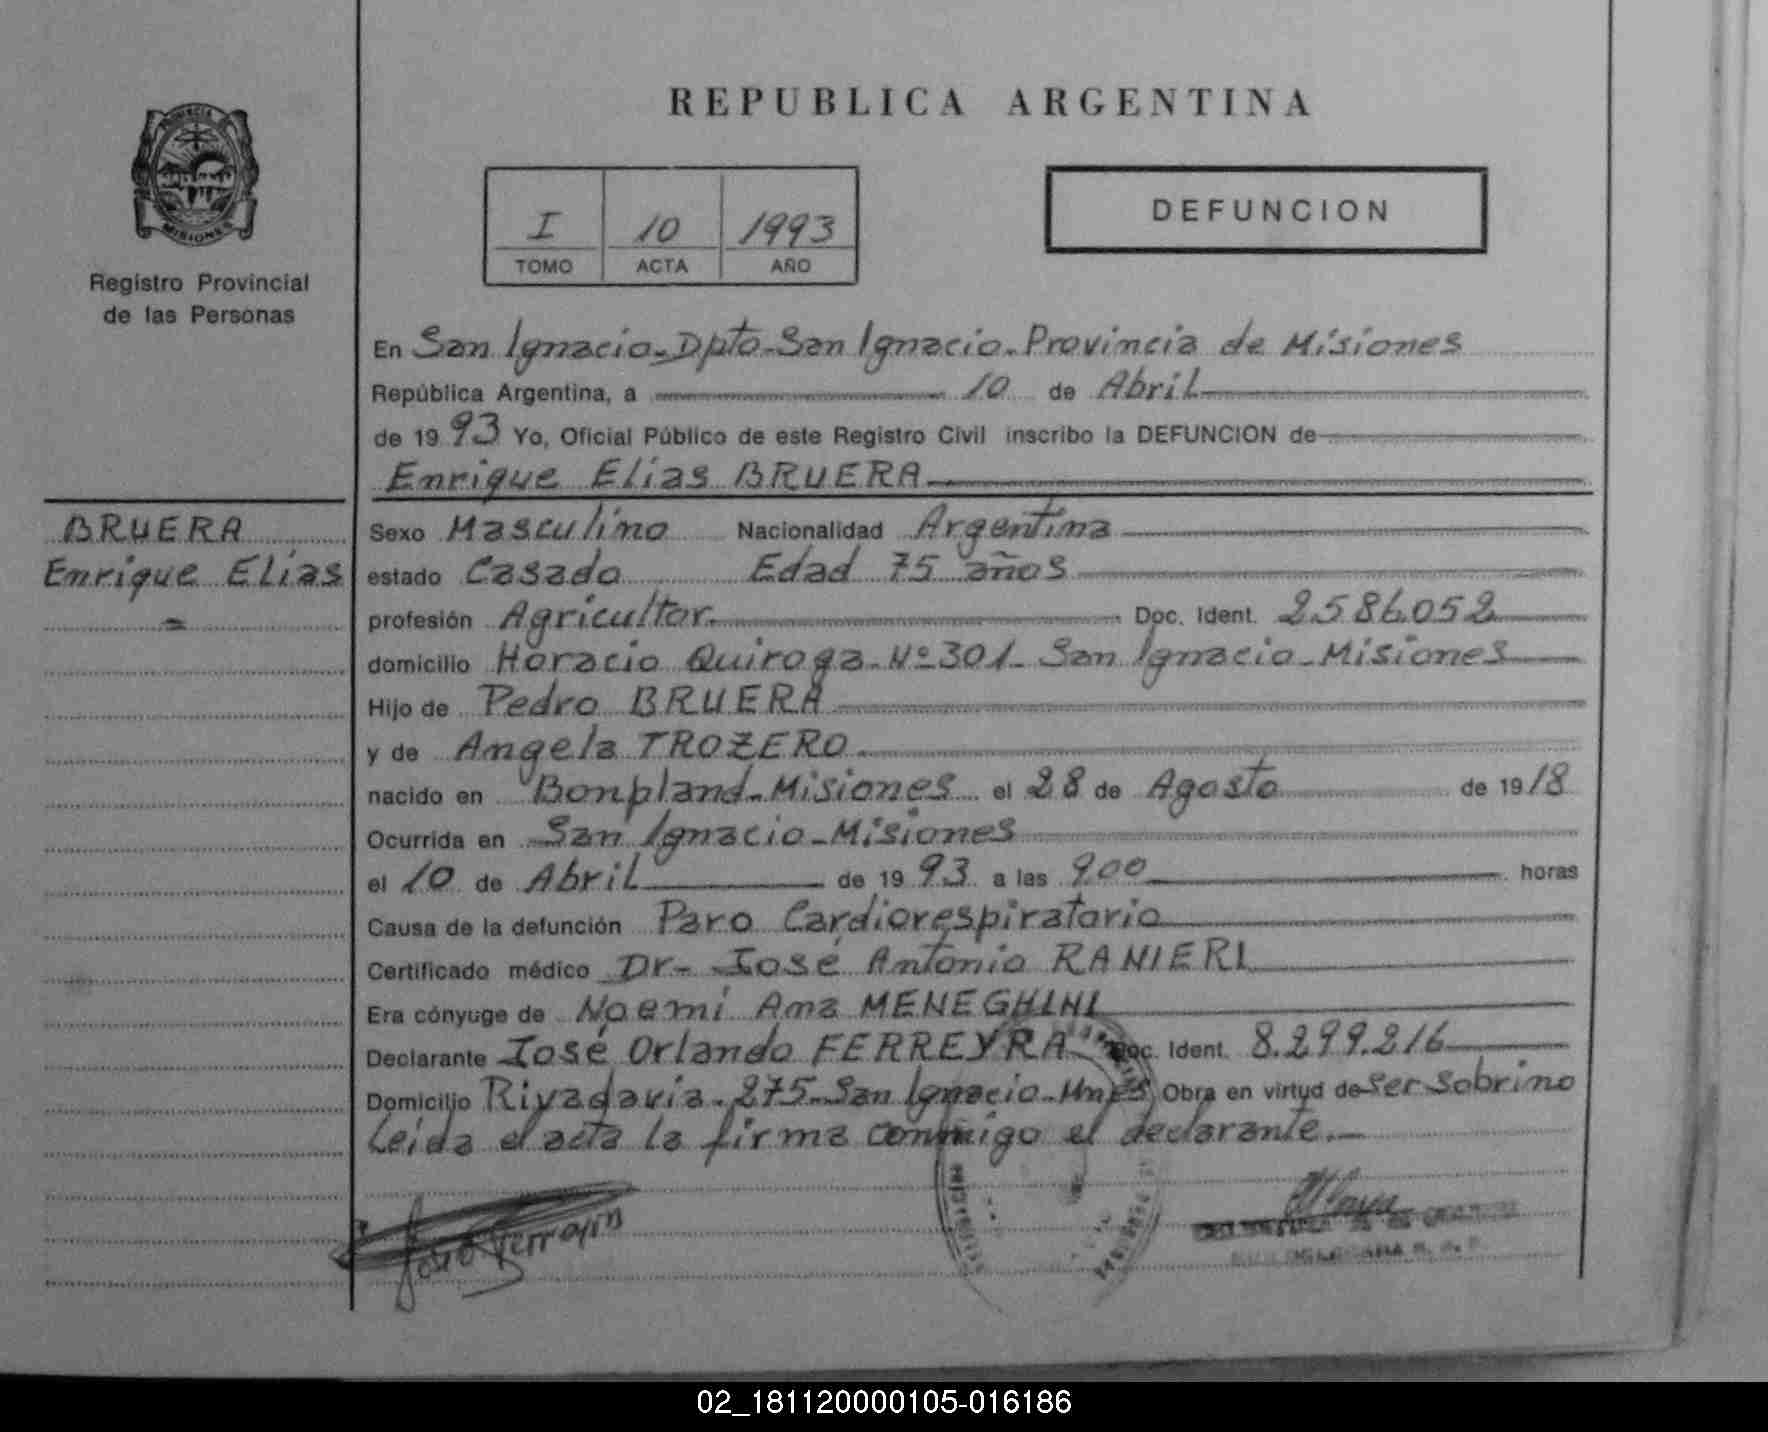 REPUBLICA ARGENTINA
PROVINCIA DE
MISIONES
Registro Provincial
de las Personas
I 10 1993
TOMO ACTA AÑO
DEFUNCION
En San Ignacio-Dpto-San Ignacio-Provincia de Misiones
República Argentina, a 10 de Abril
de 1993 Yo, Oficial Público de este Registro Civil inscribo la DEFUNCION de
Enrique Elias BRUERA
BRUERA
Enrique Elias
Sexo Masculino Nacionalidad Argentina
estado Casado Edad 75 años
profesión Agricultor. Doc. Ident. 2586052
domicilio Horacio Quiroga-Nº301-San Ignacio-Misiones
Hijo de Pedro BRUERA
y de Angela TROZERO
nacido en Bonpland-Misiones el 28 de Agosto de 1918
Ocurrida en San Ignacio-Misiones
el 10 de Abril de 1993 a las 9.00 horas
Causa de la defunción Paro Cardiorespiratorio
Certificado médico Dr- José Antonio RANIERI
Era cónyuge de Noemí Ana MENEGHINI
Declarante José Orlando FERREYRA Doc. Ident. 8.299.216
Domicilio Rivadavia-275-San Ignacio-Mnes Obra en virtud de ser sobrino
Leída el acta la firma conmigo el declarante.-
02_181120000105-016186